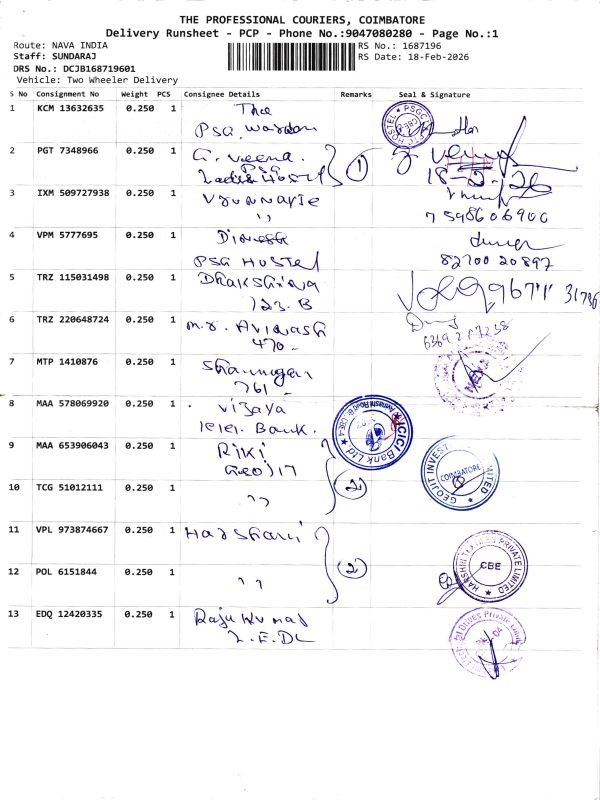 THE PROFESSIONAL COURIERS, COIMBATORE
Delivery Runsheet - PCP - Phone No.:9047080280 - Page No.:1
Route: NAVA INDIA
Staff: SUNDARAJ
DRS No.: DCJB168719601
Vehicle: Two Wheeler Delivery
RS No.: 1687196
RS Date: 18-Feb-2026
S No Consignment No Weight PCS Consignee Details Remarks Seal & Signature
1 KCM 13632635 0.250 1 The
PSG. Warden
2 PGT 7348966 0.250 1 G. Veena.
PSG
Ladies Hostel
1
18-2-26
3 IXM 509727938 0.250 1
''
7598606900
4 VPM 5777695 0.250 1 Dinesh
PSG HOSTEL
82700 20897
5 TRZ 115031498 0.250 1
123. B
6 TRZ 220648724 0.250 1 M.r. Avinash
470
7 MTP 1410876 0.250 1 Shanmugan
761
8 MAA 578069920 0.250 1 Vijaya
ICICI. Bank.
ICICI Bank Ltd
9 MAA 653906043 0.250 1 Riki
Geojit
2
GEOJIT INVEST
COIMBATORE
10 TCG 51012111 0.250 1 ''
11 VPL 973874667 0.250 1 Harshani
2
PRIVATE LIMITED
CBE
12 POL 6151844 0.250 1 ''
13 EDQ 12420335 0.250 1 Rajkumar